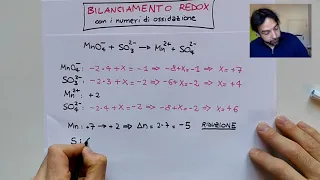 BILANCIAMENTO REDOX
con i numeri di ossidazione
MnO₄⁻ + SO₃²⁻ → Mn²⁺ + SO₄²⁻
MnO₄⁻: -2·4+x=-1 ⇒ -8+x=-1 ⇒ x=+7
SO₃²⁻: -2·3+x=-2 ⇒ -6+x=-2 ⇒ x=+4
Mn²⁺: +2
SO₄²⁻: -2·4+x=-2 ⇒ -8+x=-2 ⇒ x=+6
Mn: +7 → +2 ⇒ Δn = 2-7 = -5 RIDUZIONE
S: